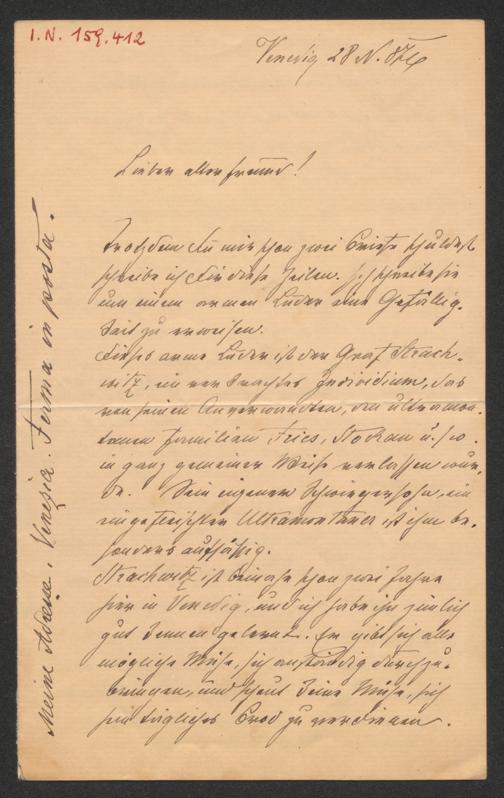 I.N. 159.412
Venedig 28 N. 87
Lieber alter Freund!
Trotzdem Du mir schon zwei Briefe schuldest
schreibe ich Dir diese Zeilen. Ich schreibe sie
um einem armen Luder eine Gefällig-
keit zu erweisen.
Dieses arme Luder ist der Graf Strach-
witz, ein verkrachtes Individium, das
von seinen Anverwandten, den ultramon-
tanen Familien Fries, Stockau u. s. w.
in ganz gemeiner Weise verlassen wur-
de. Sein eigener Schwiegersohn, ein
eingefleischter Ultramontaner ist ihm be-
sonders aufsässig.
Strachwitz ist beinahe schon zwei Jahre
hier in Venedig, und ich habe ihn ziemlich
gut kennen gelernt. Er gibt sich alle
mögliche Mühe, sich anständig durchzu-
bringen, und scheut keine Mühe, sich
sein tägliches Brod zu verdienen.
Meine Adresse: Venezia. Ferma in posta.